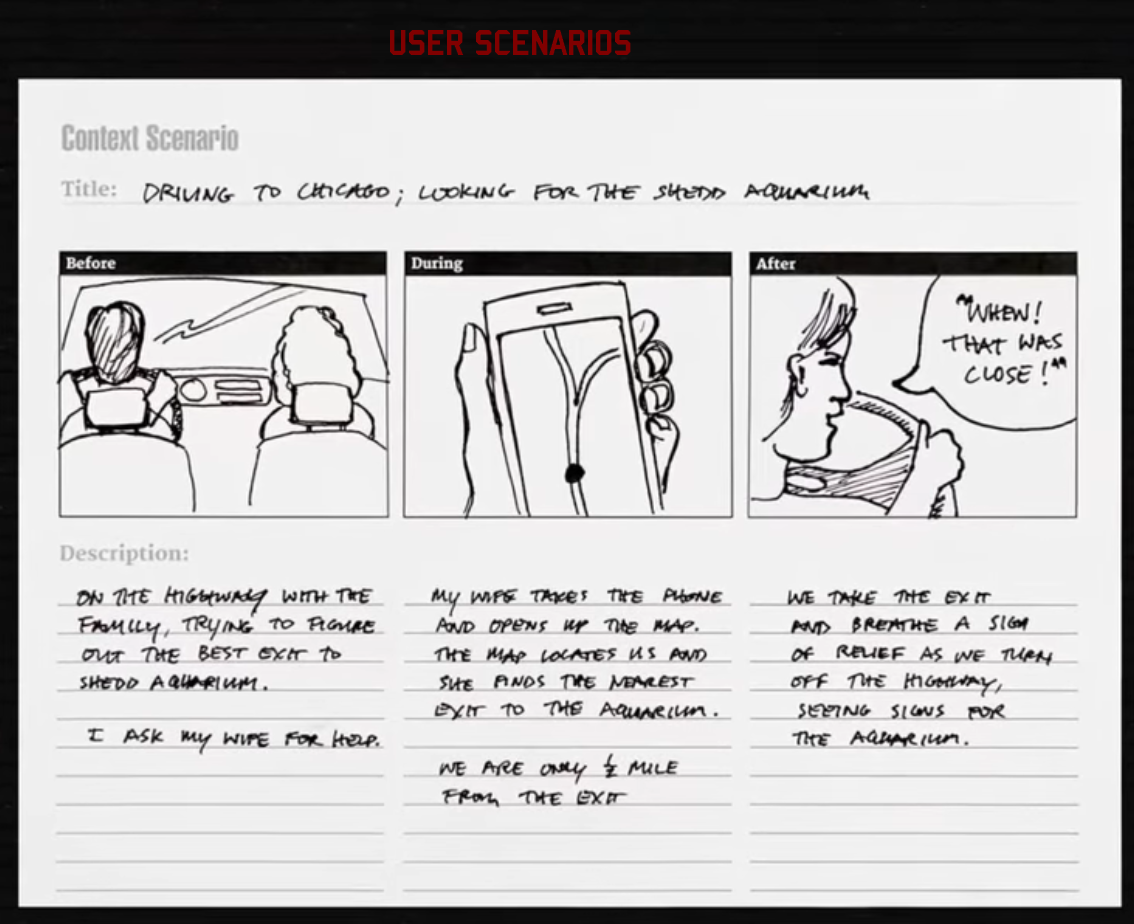 USER SCENARIOS
Context Scenario
Title: DRIVING TO CHICAGO; LOOKING FOR THE SHEDD AQUARIUM
Before
During
After
"WHEW!
THAT WAS
CLOSE!"
Description:
ON THE HIGHWAY WITH THE
FAMILY, TRYING TO FIGURE
OUT THE BEST EXIT TO
SHEDD AQUARIUM.
I ASK MY WIFE FOR HELP.
MY WIFE TAKES THE PHONE
AND OPENS UP THE MAP.
THE MAP LOCATES US AND
SHE FINDS THE NEAREST
EXIT TO THE AQUARIUM.
WE ARE ONLY ½ MILE
FROM THE EXIT
WE TAKE THE EXIT
AND BREATHE A SIGH
OF RELIEF AS WE TURN
OFF THE HIGHWAY,
SEEING SIGNS FOR
THE AQUARIUM.